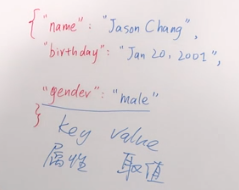 {"name": "Jason Chang",
"birthday": "Jan 20, 2001",
"gender": "male"
}
key value
屬性 取值